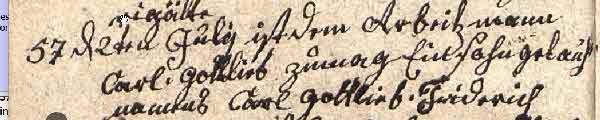 57 d 2ten July ist dem Arbeitzmann
Carl Gottlieb Zumag Ein Sohn getauft
namens Carl Gottlieb Friderich